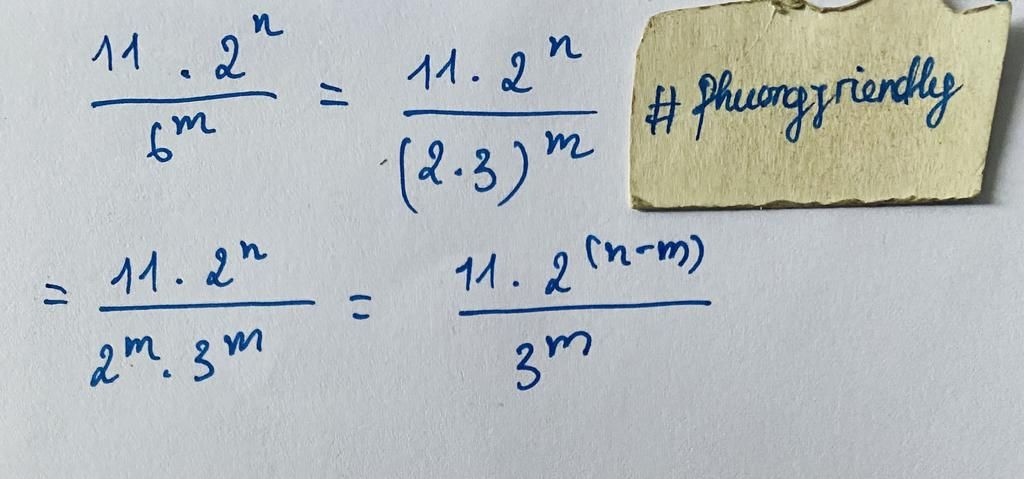 \frac{11 \cdot 2^n}{6^m} = \frac{11 \cdot 2^n}{(2 \cdot 3)^m}
# phuongfriendly
= \frac{11 \cdot 2^n}{2^m \cdot 3^m} = \frac{11 \cdot 2^{(n-m)}}{3^m}